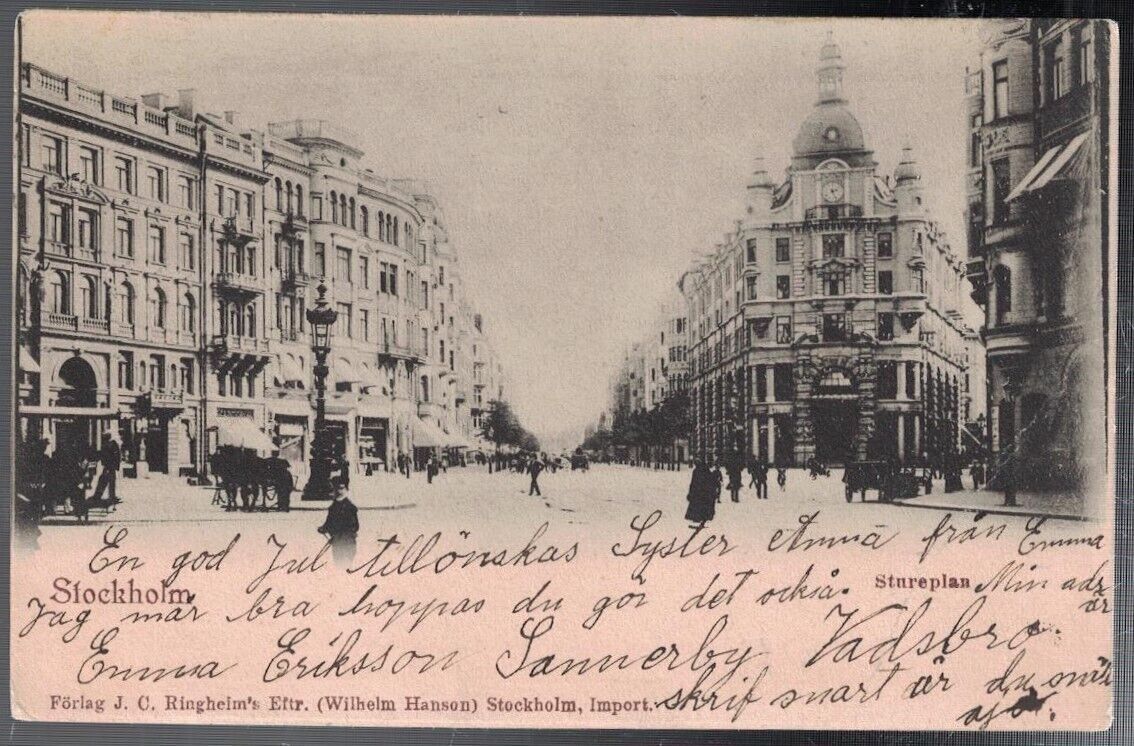 En god Jul tillönskas Syster Anna från Emma
Stockholm
Stureplan
Min adr
är
Jag mår bra hoppas du gör det också.
Emma Eriksson Sannerby Vadsbro.
skrif snart är du snäll
Förlag J. C. Ringheim's Eftr. (Wilhelm Hanson) Stockholm, Import.